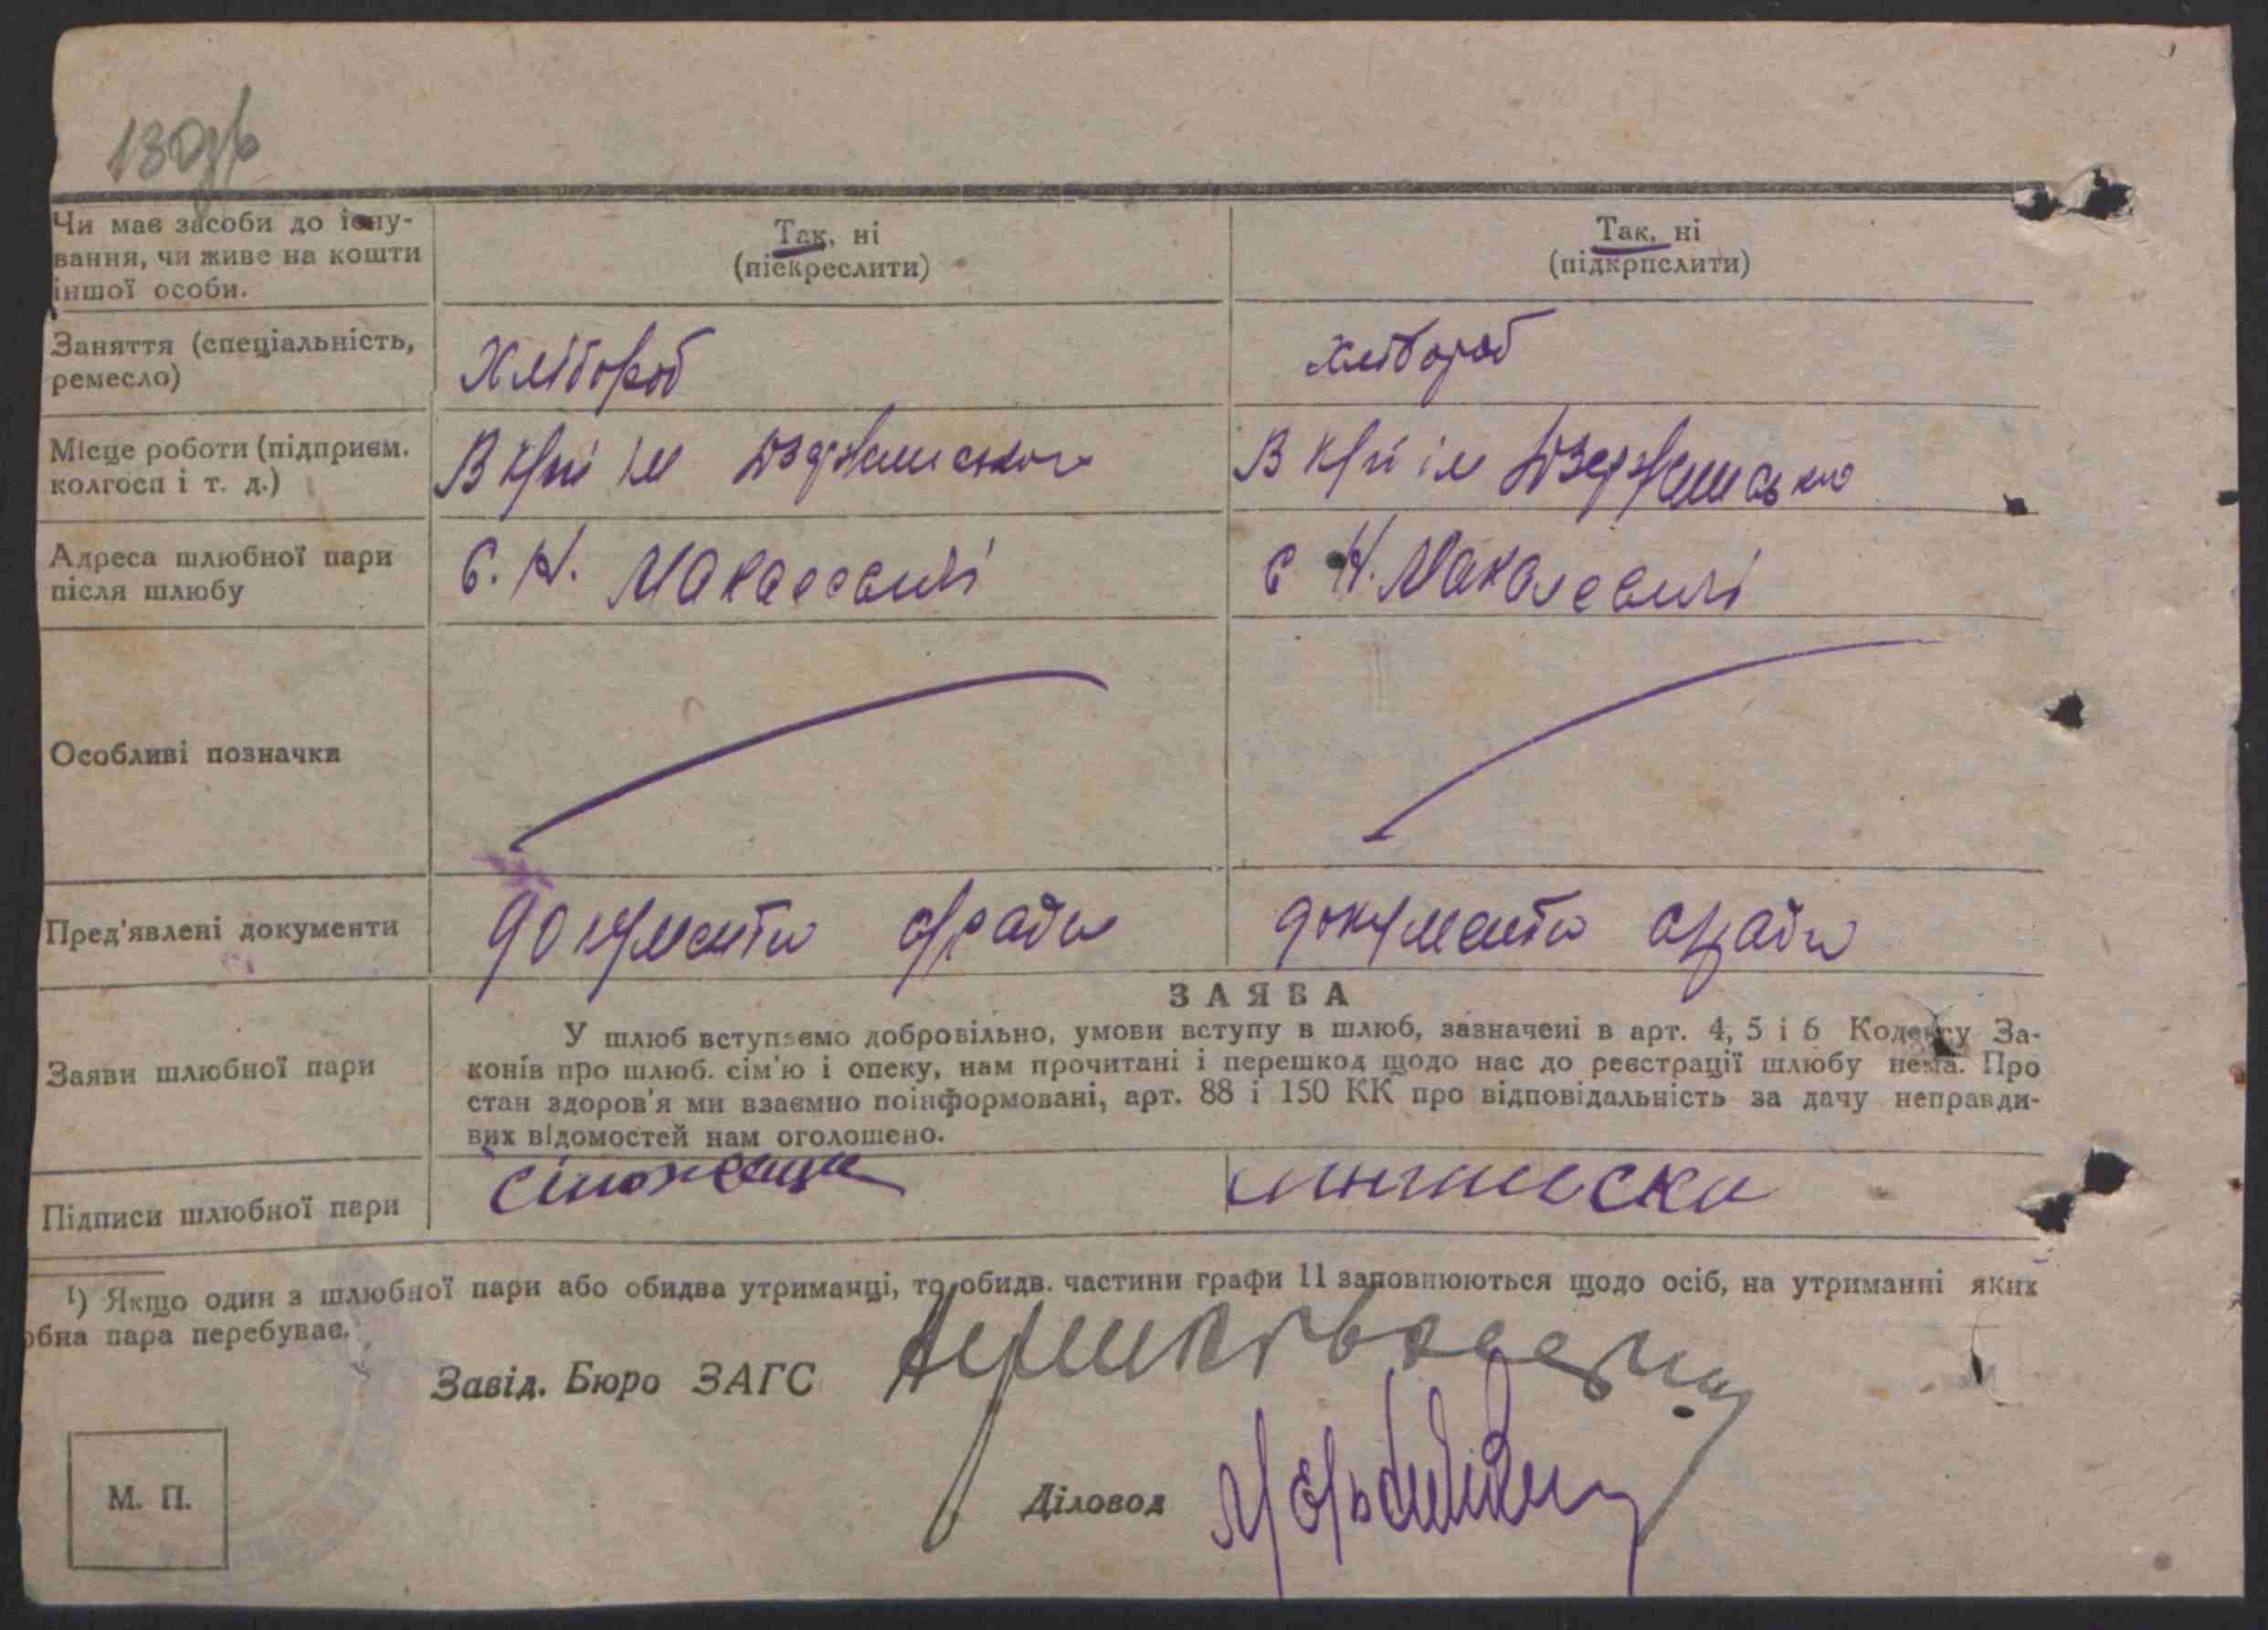 130зв
Чи має засоби до існу-
вання, чи живе на кошти
іншої особи.
Так, ні
(піекреслити)
Так, ні
(підкрпслити)
Заняття (спеціальність,
ремесло)
Хлібороб
хлібороб
Місце роботи (підприєм.
колгосп і т. д.)
В к/гі ім Дзержинського
В к/гі ім Дзержинсько
Адреса шлюбної пари
після шлюбу
с. Н. Макалевичі
с Н. Макалевичі
Особливі позначки
Пред'явлені документи
документи с/ради
документи с/ради
Заяви шлюбної пари
ЗАЯВА
У шлюб вступаємо добровільно, умови вступу в шлюб, зазначені в арт. 4, 5 і 6 Кодексу За-
конів про шлюб. сім'ю і опеку, нам прочитані і перешкод щодо нас до реєстрації шлюбу нема. Про
стан здоров'я ми взаємно поінформовані, арт. 88 і 150 КК про відповідальність за дачу неправди-
вих відомостей нам оголошено.
Підписи шлюбної пари
¹) Якщо один з шлюбної пари або обидва утриманці, то обидв. частини графи 11 заповнюються щодо осіб, на утриманні яких
обна пара перебуває.
Завід. Бюро ЗАГС
Діловод
М. П.